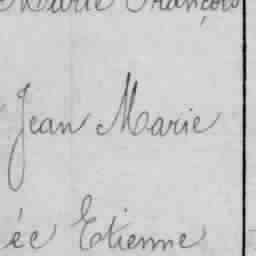 Marie François
Jean Marie
ée Etienne